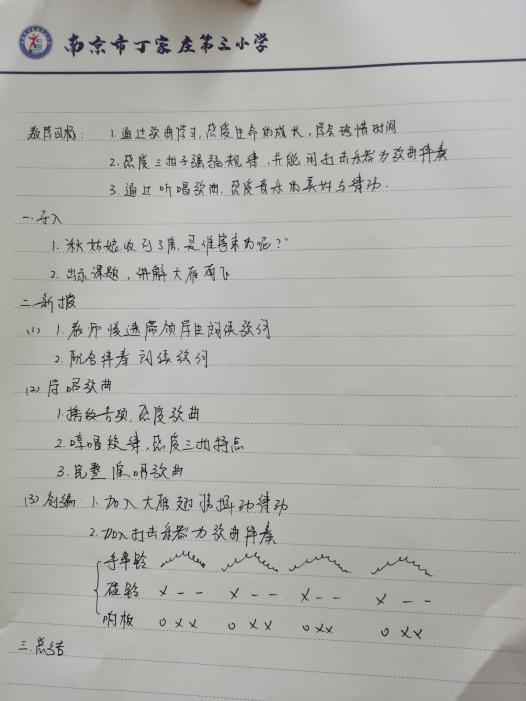 南京市丁家庄第三小学
教学目标： 1.通过歌曲学习,感受生命的成长,学会珍惜时间
2.感受三拍子强弱规律,并能用打击乐器为歌曲伴奏
3.通过听唱歌曲,感受音乐的美性与律动.
一.导入
1."秋姑娘收到了信,是谁寄来的呢?"
2.出示课题,讲解大雁南飞
二.新授
(1) 1.教师慢速带领学生朗读歌词
2.配合伴奏朗读歌词
(2) 学唱歌曲
1.播放音频,感受歌曲
2.哼唱旋律,感受三拍特点
3.完整演唱歌曲
(3) 创编 1.加入大雁翅膀挥动律动
2.加入打击乐器为歌曲伴奏
手串铃
碰铃 X - - X - - X - - X - -
响板 0 X X 0 X X 0 X X 0 X X
三.总结